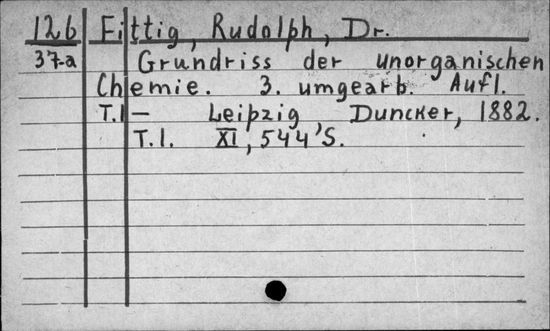 126 Fittig, Rudolph, Dr.
37-a Grundriss der unorganischen
Chemie. 3. umgearb. Aufl.
T.1 — Leipzig, Duncker, 1882.
T.1. XI, 544 S.